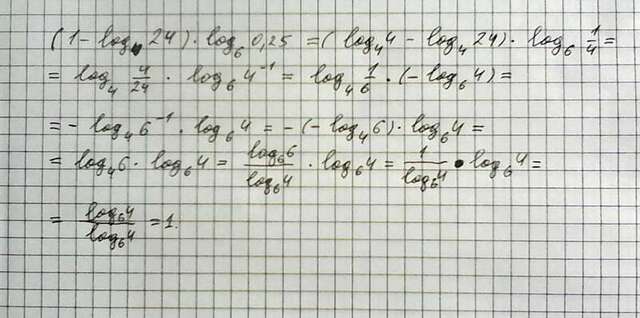 (1 - log₄ 24) · log₆ 0,25 = (log₄4 - log₄ 24) · log₆ 1/4 =
= log₄ 4/24 · log₆ 4⁻¹ = log₄ 1/6 · (-log₆ 4) =
= - log₄ 6⁻¹ · log₆ 4 = -(-log₄ 6) · log₆ 4 =
= log₄ 6 · log₆ 4 = log₆6/log₆4 · log₆ 4 = 1/log₆4 · log₆ 4 =
= log₆4/log₆4 = 1.